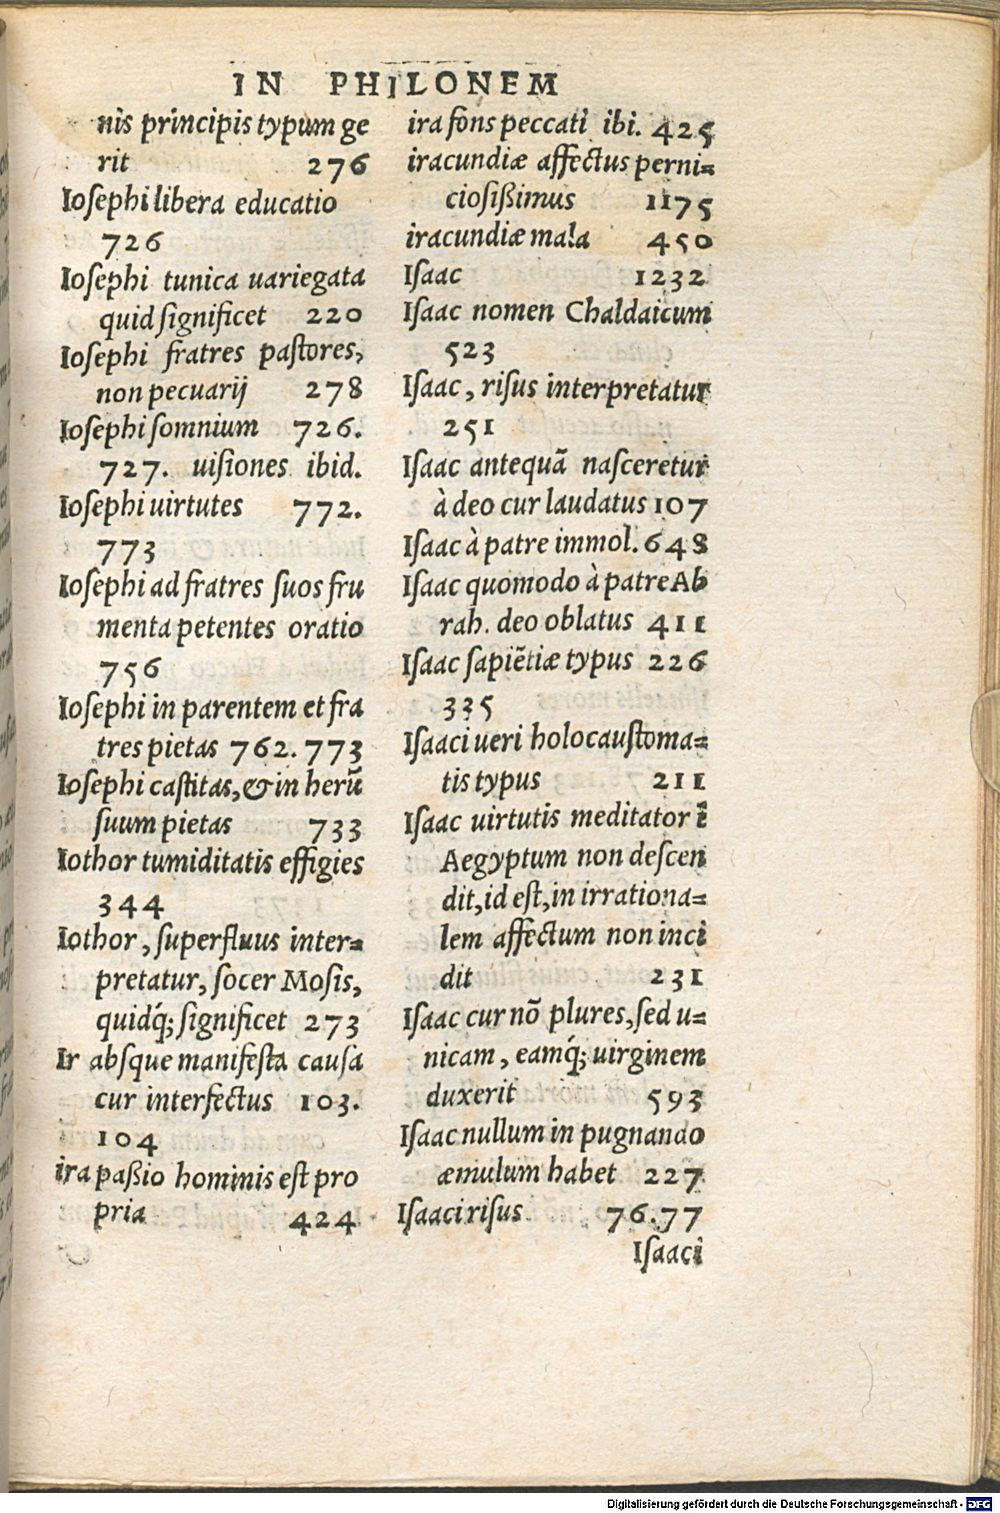 IN PHILONEM
nis principis typum ge
rit 276
Ioſephi libera educatio
726
Ioſephi tunica uariegata
quid ſignificet 220
Ioſephi fratres paſtores,
non pecuarij 278
Ioſephi ſomnium 726.
727. uiſiones ibid.
Ioſephi uirtutes 772.
773
Ioſephi ad fratres ſuos fru
menta petentes oratio
756
Ioſephi in parentem et fra
tres pietas 762. 773
Ioſephi caſtitas, & in herũ
ſuum pietas 733
Iothor tumiditatis effigies
344
Iothor, ſuperfluus inter=
pretatur, ſocer Moſis,
quidq́; ſignificet 273
Ir absque manifeſta cauſa
cur interfectus 103.
104
ira paßio hominis eſt pro
pria 424
ira fons peccati ibi. 425
iracundiæ affectus perni=
cioſißimus 1175
iracundiæ mala 450
Iſaac 1232
Iſaac nomen Chaldaicum
523
Iſaac, riſus interpretatur
251
Iſaac antequã naſceretur
à deo cur laudatus 107
Iſaac à patre immol. 648
Iſaac quomodo à patre Ab
rah. deo oblatus 411
Iſaac ſapiẽtiæ typus 226
335
Iſaaci ueri holocauſtoma=
tis typus 211
Iſaac uirtutis meditator ĩ
Aegyptum non deſcen
dit, id eſt, in irrationa=
lem affectum non inci
dit 231
Iſaac cur nõ plures, ſed u=
nicam, eamq́; uirginem
duxerit 593
Iſaac nullum in pugnando
æmulum habet 227
Iſaaci riſus 76.77
Iſaaci
Digitalisierung gefördert durch die Deutsche Forschungsgemeinschaft - DFG